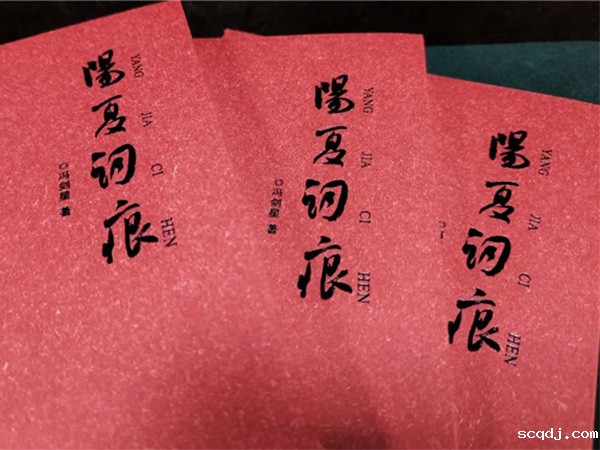 陽夏词痕
YANG JIA CI HEN
◎冯剑星 著
陽夏词痕
YANG JIA CI HEN
◎冯剑星 著
陽夏词痕
YANG JIA CI HEN
scqdj.com